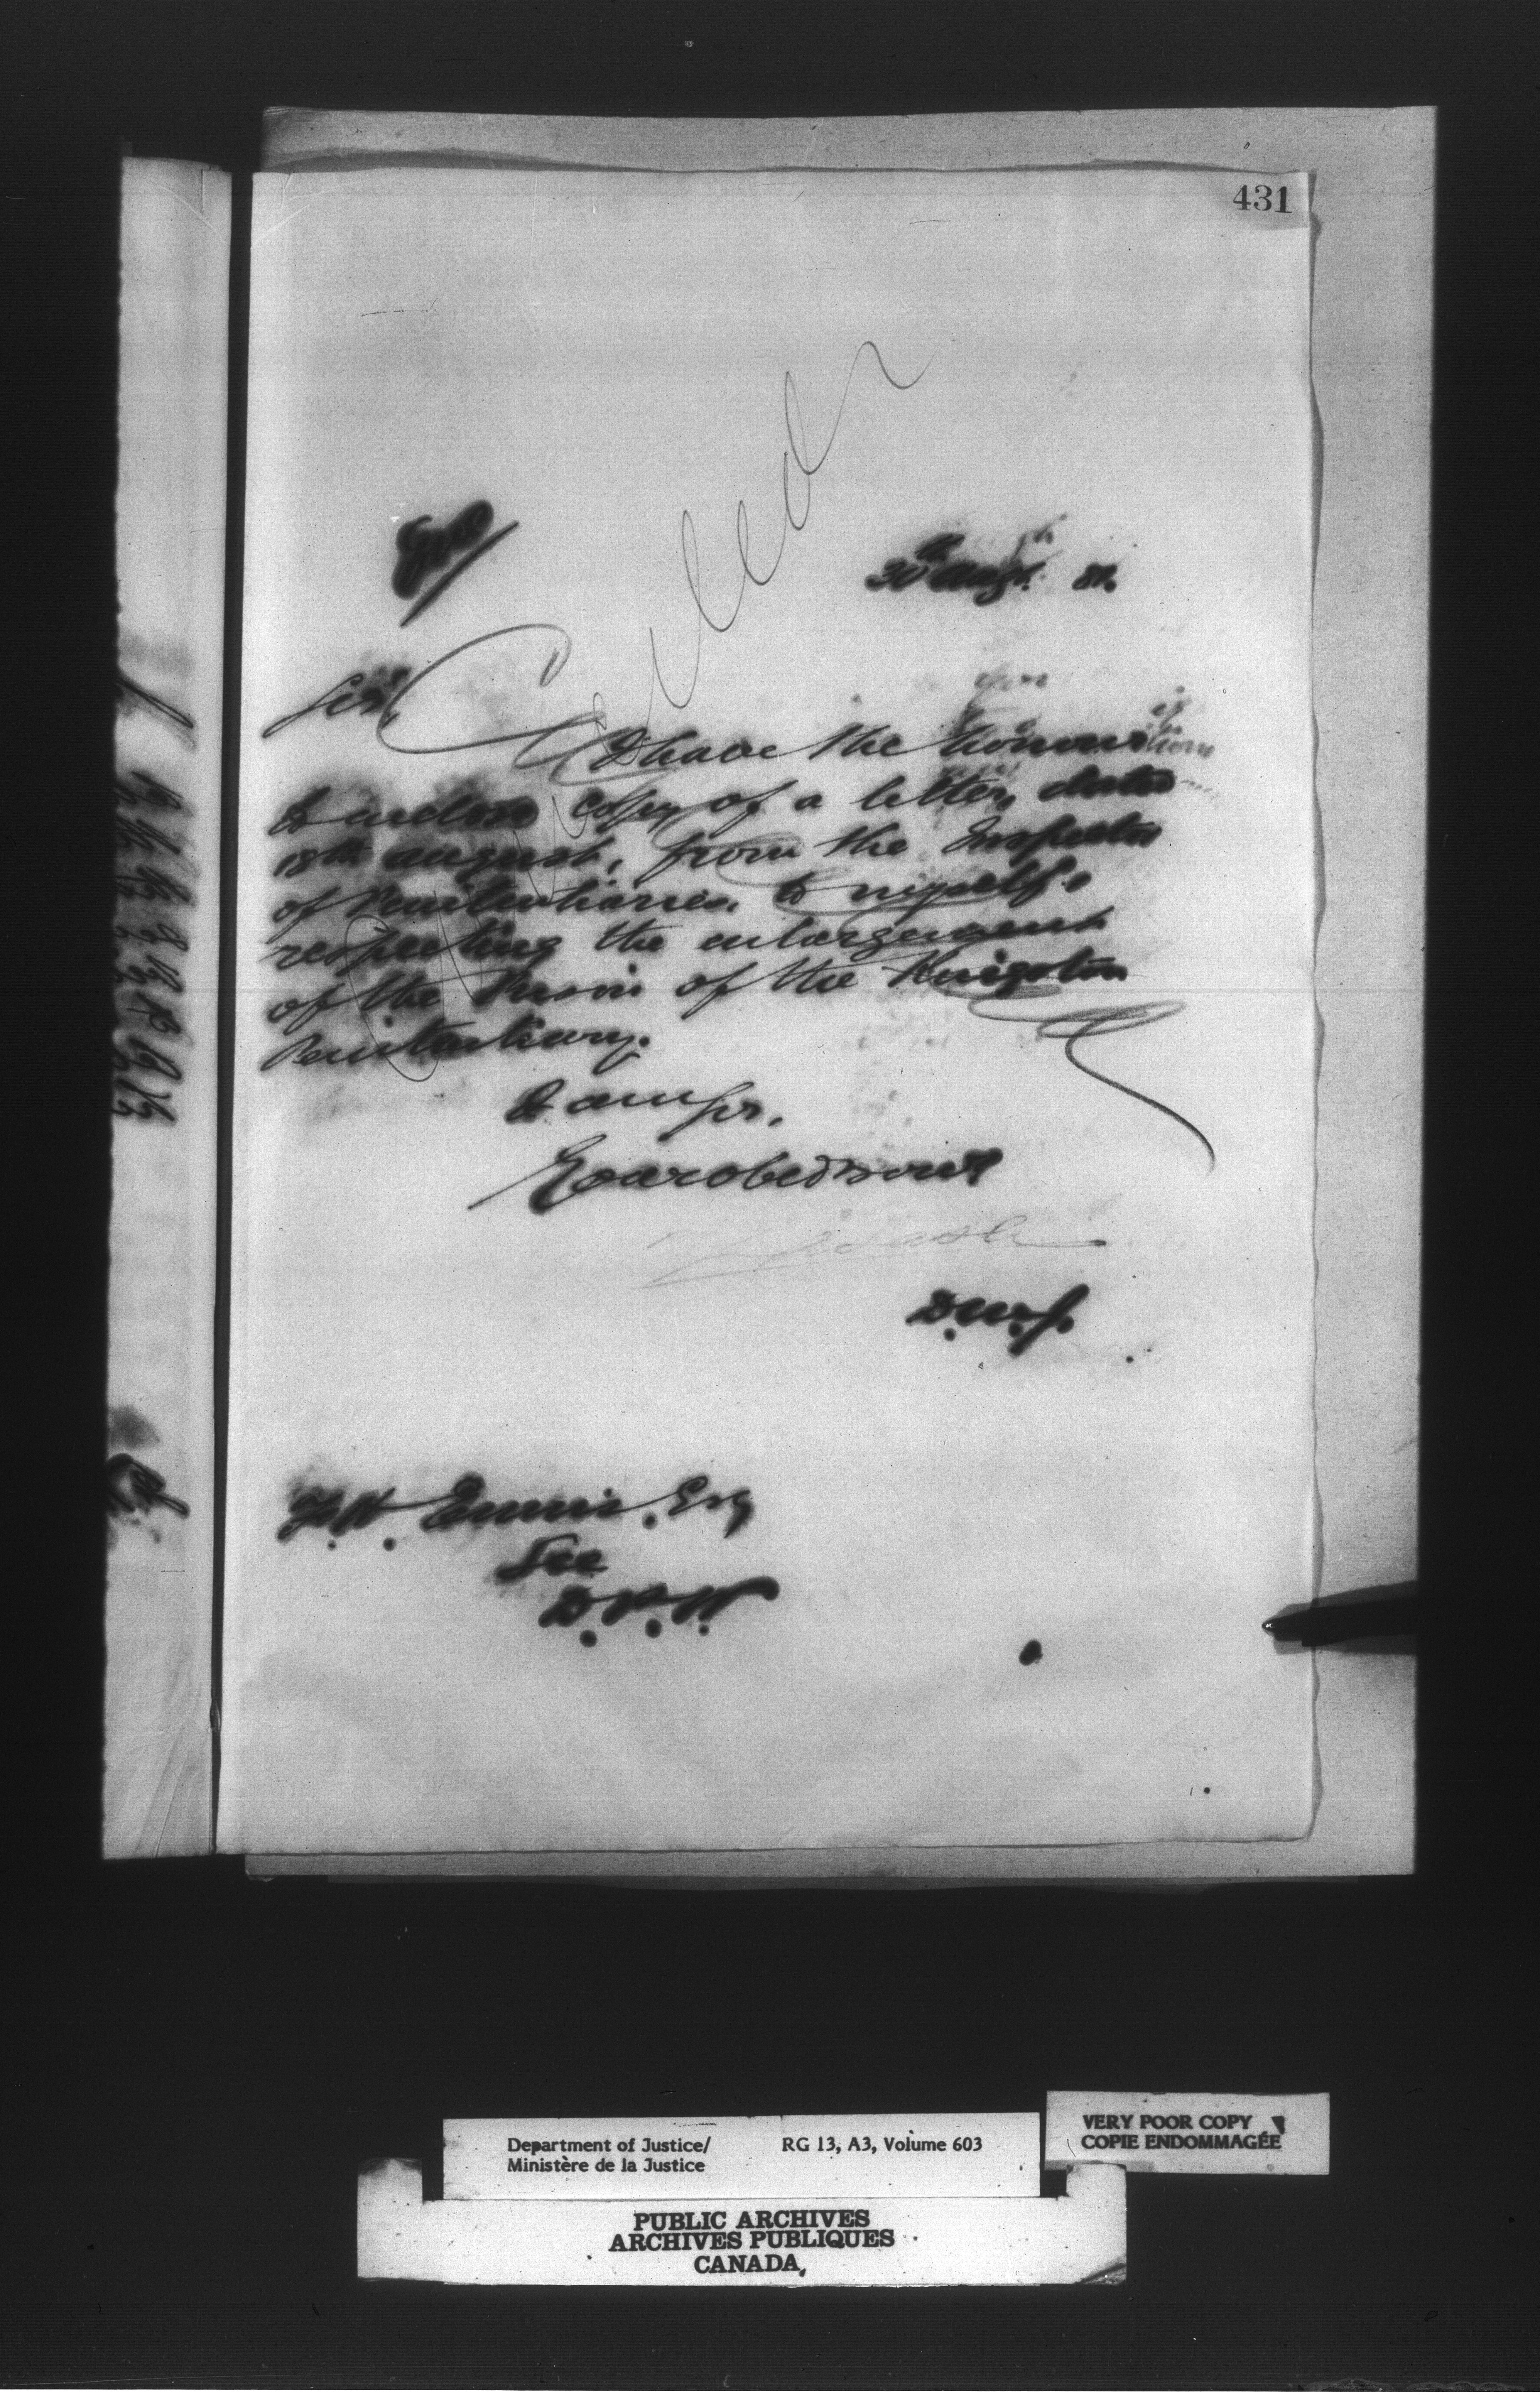 431
30th Augt. 81.
Sir,
I have the honour
to enclose copy of a letter, dated
18th August, from the Inspector
of Penitentiaries, to myself,
respecting the enlargement
of the Prison of the Kingston
Penitentiary.
I am Sir,
Your obed servt
D.M.J.
F.H. Ennis, Esq
Sec
D.P.W.
Cancelled
Department of Justice/
Ministère de la Justice
RG 13, A3, Volume 603
VERY POOR COPY
COPIE ENDOMMAGÉE
PUBLIC ARCHIVES
ARCHIVES PUBLIQUES
CANADA